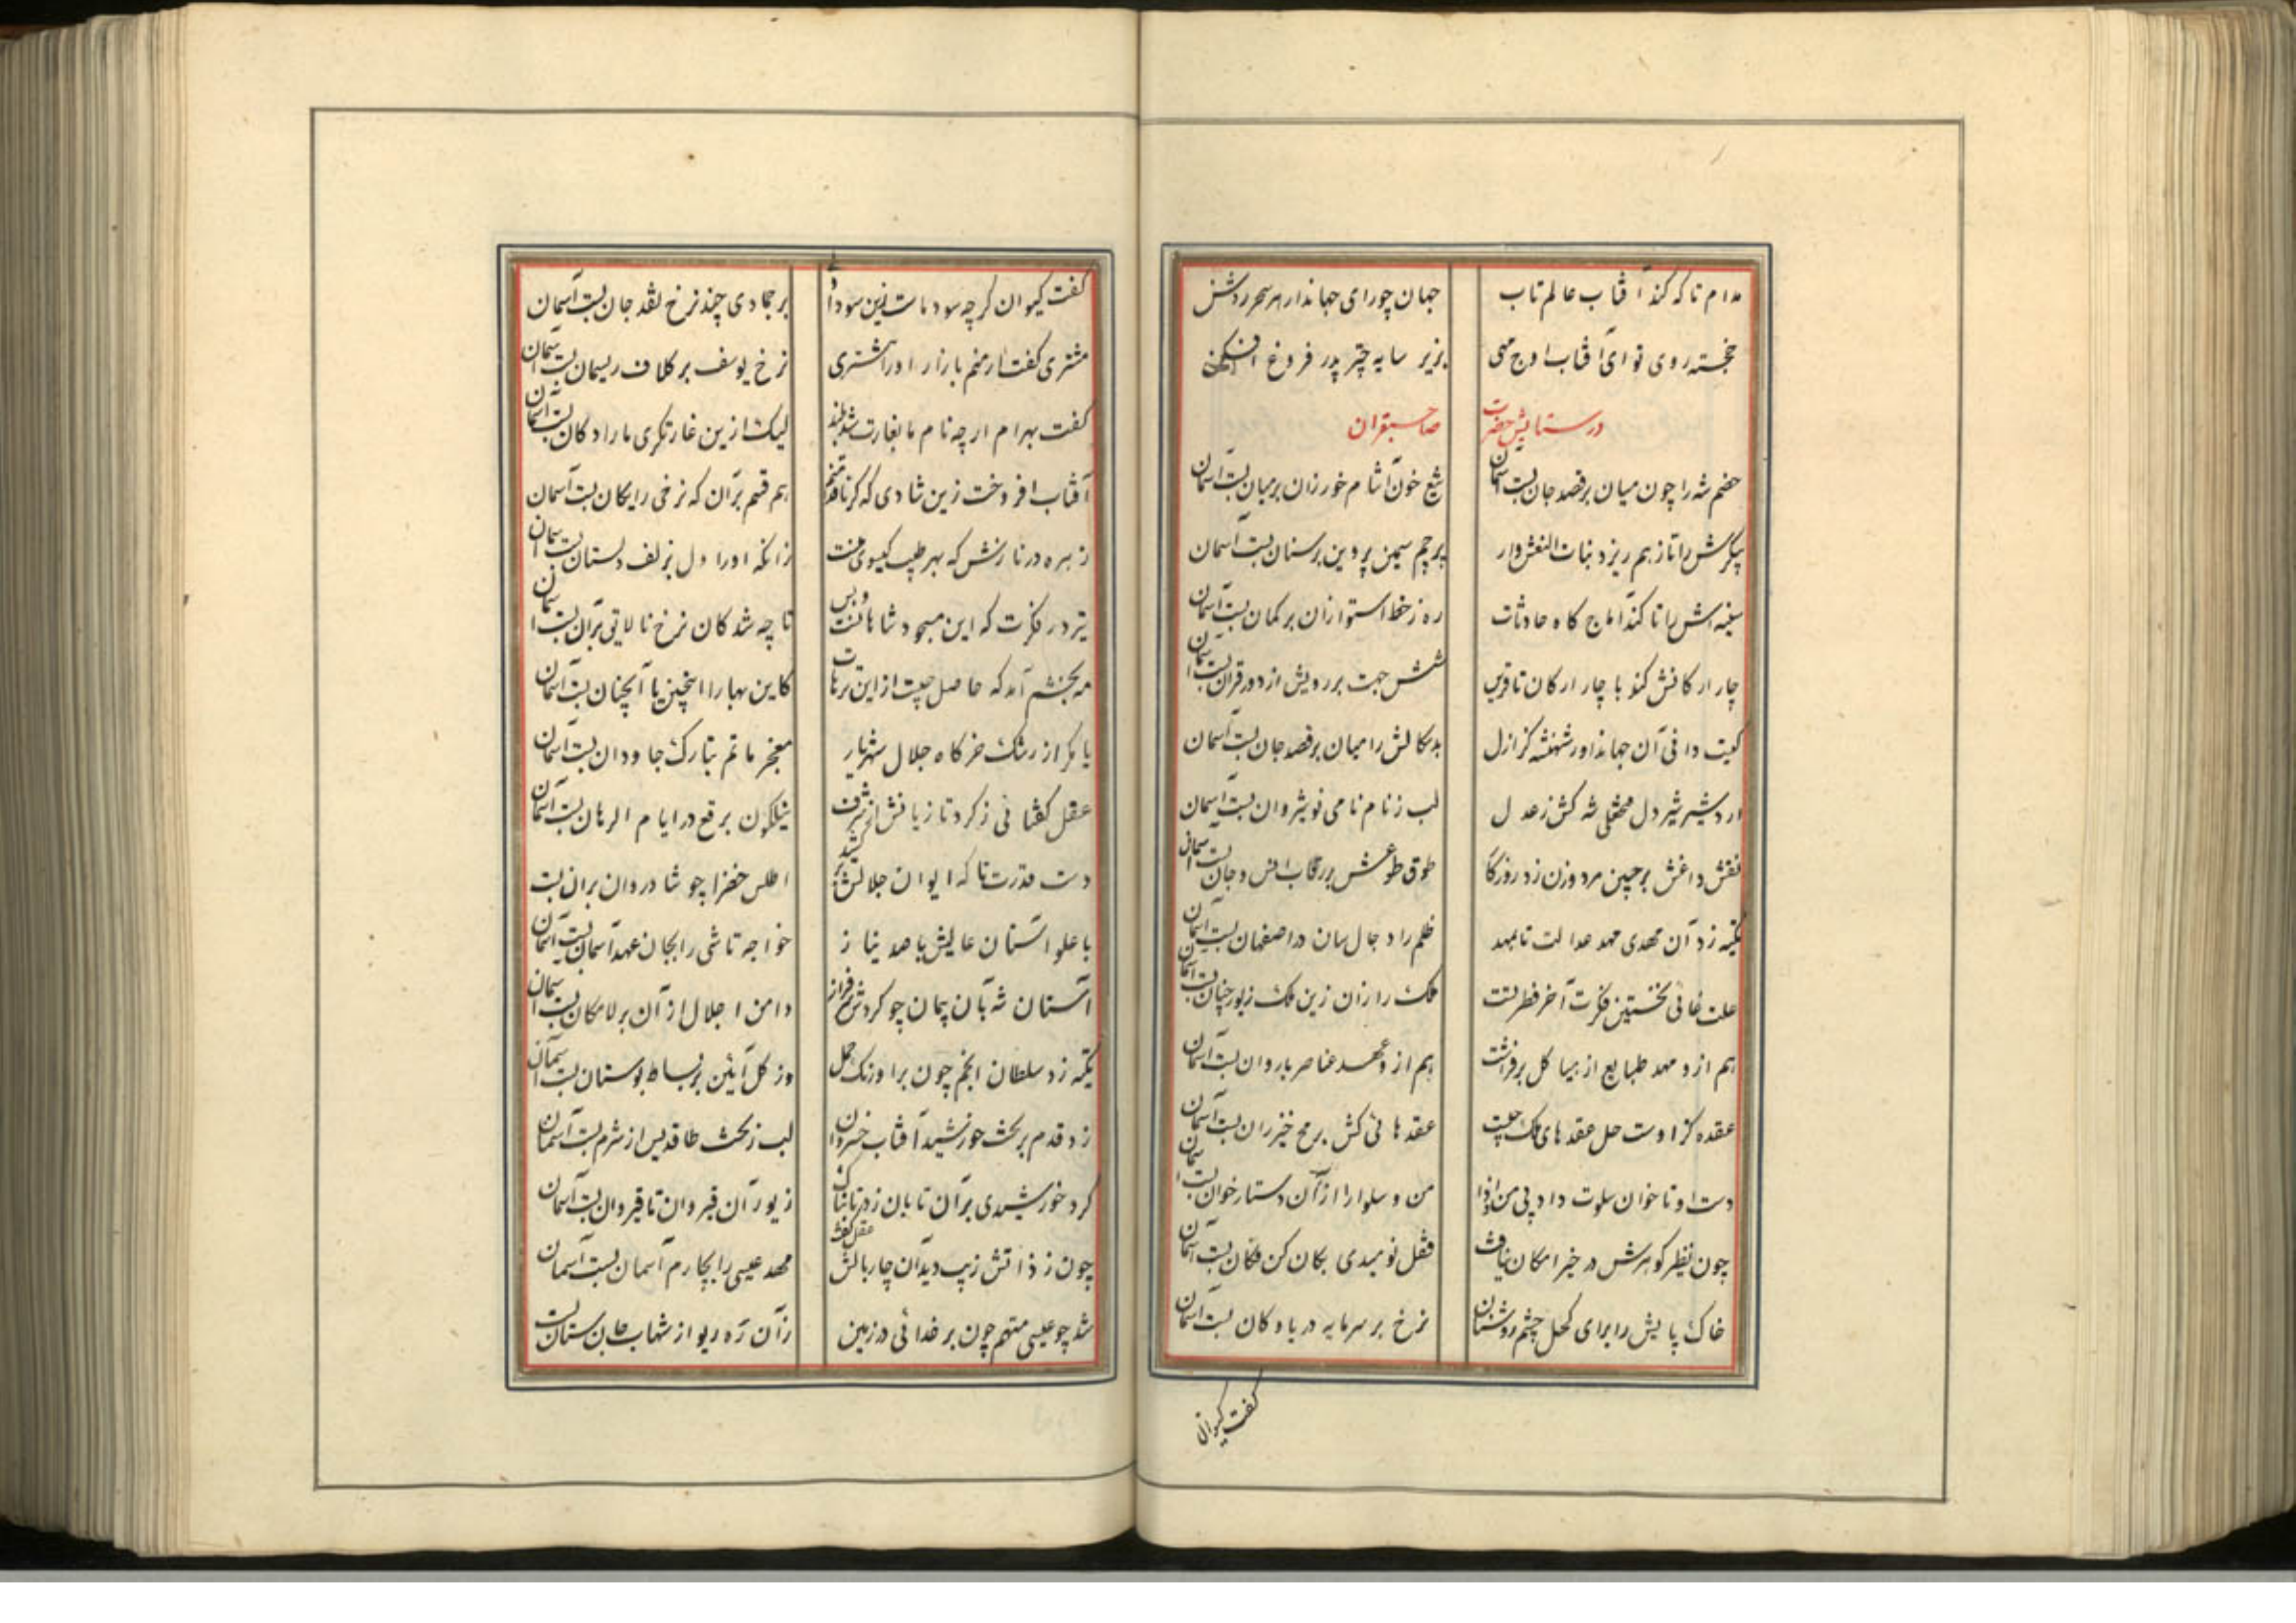 مدام تا که کند آفتاب عالم تاب جهان چو رای جهاندار هر سحر روشن
خجسته روی تو ای آفتاب اوج مهی بزیر سایه چتر پدر فروغ افکن
در ستایش حضرت صاحبقران
خصم شه را چون میان بر قصد جان بست آسمان تیغ خون آشام خور زان بر میان بست آسمان
پیکرش را تا ز هم ریزد بنات النعش وار پرچم سیمین پروین بر سنان بست آسمان
سینه اش را تا کند آماج کاه حادثات ره ز خط استوا زان بر کمان بست آسمان
چار ارکانش کند با چار ارکان تا قرین شش جهت بر رویش از دور قران بست آسمان
کیست دانی آن جهانداور شهنشه کز ازل بدسکالش را میان بر قصد جان بست آسمان
اردشیر شیر دل فتحعلی شه کش ز عدل لب ز نام نامی نوشیروان بست آسمان
نقش داغش بر جبین مرد و زن زد روزکار طوق طوعش بر رقاب انس و جان بست آسمان
تکیه زد آن مهدی مهد عدالت تا بمهد ظلم را دجال سان در اصفهان بست آسمان
علت غائی نخستین فکرت آخر فطرتست ملک را زان زین ملک زیور چنان بست آسمان
هم ازو مهد طبایع از هیاکل برفراشت هم ازو عهد عناصر با روان بست آسمان
عقده کز اوست حل عقدهای ملک چیست عقدهائی کش بر مح خیزران بست آسمان
دست او تا خوان سلوت داد پی من و اذا من و سلوا را از آن دستار خوان بست آسمان
چون نظیر کوهرش در خیر امکان نیافت قفل نومیدی بکان کن فکان بست آسمان
خاک پایش را برای کحل چشم روشنان نرخ بر سرمایه دریا و کان بست آسمان
کفت کیوان
کفت کیوان کر چه سود ماست زین سودا ولی بر جمادی چند نرخ نقد جان بست آسمان
مشتری کفت ار منم بازار او را مشتری نرخ یوسف بر کلاف ریسمان بست آسمان
کفت بهرام ار چه نام ما بغارت شد بلند لیک ازین غارتکری ما را دکان بست آسمان
آفتاب افروخت زین شادی که کر ناقد منم هم قسم بر آن که نرخی رایکان بست آسمان
زهره در نازش که بهر طیب کیسوی منست زانکه او را دل بزلف دلستان بست آسمان
تیر در فکرت که این مسجود شاهانست و بس تا چه شد کان نرخ نالایق بر آن بست آسمان
مه بخشم آمد که حاصل چیست از این ترهات کاین بها را اینچنین یا آنچنان بست آسمان
یا مکر از رشک خرکاه جلال شهریار معجر ماتم بتارک جاودان بست آسمان
عقل کفتا نی ز کرد تازیانش از شرف نیلکون برقع در ایام الرهان بست آسمان
دست قدرت تا که ایوان جلالش برکشید اطلس خضرا چو شادروان بر آن بست
با علو آستان عالیش با صد نیاز خواجه تاشی را بجان عهد آسمان بست آسمان
آستان شه بآن پیمان چو کردش سرفراز دامن اجلال از آن بر لامکان بست آسمان
تکیه زد سلطان انجم چون بر اورنک حمل وز کل آئین بر بساط بوستان بست آسمان
زد قدم بر تخت خورشید آفتاب خسروان لب ز تخت طاقدیس از شرم بست آسمان
کرد خورشیدی بر آن تابان زد تابناک زیور آن قیروان تا قیروان بست آسمان
چون ز ذاتش زیب دید آن چار بالش عقل کفت مهد عیسی را بچارم آسمان بست آسمان
شد چو عیسی متهم چون بر خدائی در زمین زان ره دیو از شهاب جان ستان بست